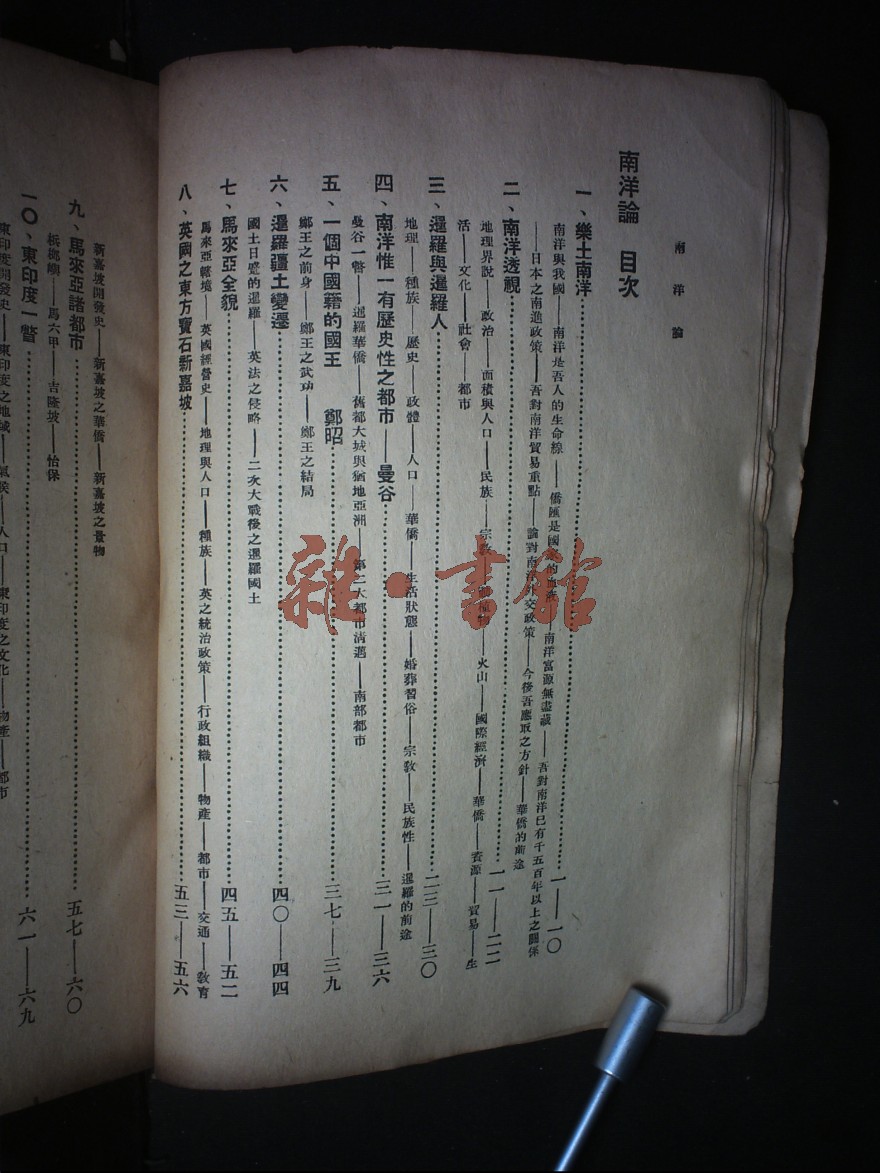 南洋論
南洋論 目次
一、樂土南洋……一——一〇
南洋與我國——南洋是吾人的生命線——僑匯是國家的血液——南洋富源無盡藏——吾對南洋已有千五百年以上之關係
——日本之南進政策——吾對南洋貿易重點——論對南洋外交政策——今後吾應取之方針——華僑的前途
二、南洋透視……一一——二二
地理界說——政治——面積與人口——民族——宗教——動植物——火山——國際經濟——華僑——資源——貿易——生
活——文化——社會——都市
三、暹羅與暹羅人……二三——三〇
地理——種族——歷史——政體——人口——華僑——生活狀態——婚葬習俗——宗教——民族性——暹羅的前途
四、南洋惟一有歷史性之都市——曼谷……三一——三六
曼谷一瞥——暹羅華僑——舊都大城與猶地亞洲——第二大都市清邁——南部都市
五、一個中國籍的國王 鄭昭……三七——三九
鄭王之前身——鄭王之武功——鄭王之結局
六、暹羅疆土變遷……四〇——四四
國土日蹙的暹羅——英法之侵略——二次大戰後之暹羅國土
七、馬來亞全貌……四五——五二
馬來亞轄境——英國經營史——地理與人口——種族——英之統治政策——行政組織——物產——都市——交通——教育
八、英國之東方寶石新嘉坡……五三——五六
新嘉坡開發史——新嘉坡之華僑——新嘉坡之景物
九、馬來亞諸都市……五七——六〇
檳榔嶼——馬六甲——吉隆坡——怡保
一〇、東印度一瞥……六一——六九
東印度開發史——東印度之地域——氣候——人口——東印度之文化——物產——都市
雜·書館